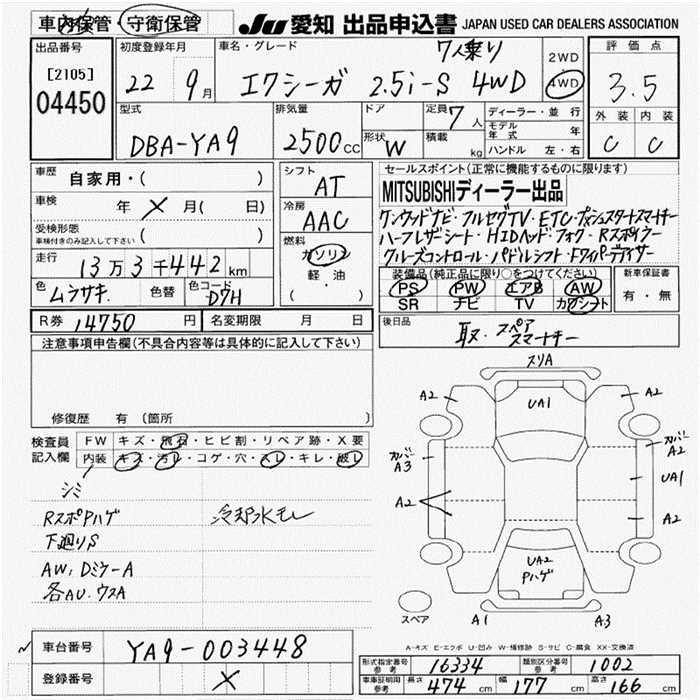 車内保管・守衛保管
JU 愛知 出品申込書 JAPAN USED CAR DEALERS ASSOCIATION
出品番号
[2105]
04450
初度登録年月
22 9月
車名・グレード
7人乗り
エクシーガ 2.5i-S 4WD
2WD
4WD
評価点
3.5
外装 内装
C C
型式
DBA-YA9
排気量
2500cc
ドア
形状 W
定員 7人
積載 kg
ディーラー・並行
モデル年式 年
ハンドル 左・右
車歴 自家用・( )
車検 年 X 月( 日)
受検形態
車検付きのみ記入して下さい ( )
走行 13万3千442km
色 ムラサキ. 色替 色コード D7H
シフト
AT
冷房
AAC
燃料
ガソリン
軽・油
( )
セールスポイント(正常に機能するものに限ります)
MITSUBISHIディーラー出品
ケンウッドナビ・フルセグTV・ETC・プッシュスタートスマートキー
ハーフレザーシート・HIDヘッド・フォグ・Rスポイラー
クルーズコントロール・パドルシフト・Fワイパーデアイサー
装備品(純正品に限り○をつけてください)
PS PW エアB AW
SR ナビ TV カワシート
新車保証書
有・無
R券 14750円 名変期限 月 日
後日品
取・スペア
スマートキー
注意事項申告欄(不具合内容等は具体的に記入して下さい)
修復歴 有(箇所 )
検査員記入欄
FW キズ・飛石・ヒビ割・リペア跡・X要
内装 キズ・汚レ・コゲ・穴・スレ・キレ・破レ
シミ
RスポPハゲ 冷却水モレ
下廻りS
AW,Dミラ-A
各AU.ウスA
スリA
A2 UA1 A2
カバーA3
カバーA2
UA1
A2
A2
UA2
Pハゲ
スペア
A1 A3
A-キズ E-エクボ U-凹み W-補修跡 S-サビ C-腐食 XX-交換済
車台番号 YA9-003448
登録番号 X
形式指定番号 参考 16334 類別区分番号 参考 1002
車庫証明用 参考 長さ 474cm 幅 177cm 高さ 166cm